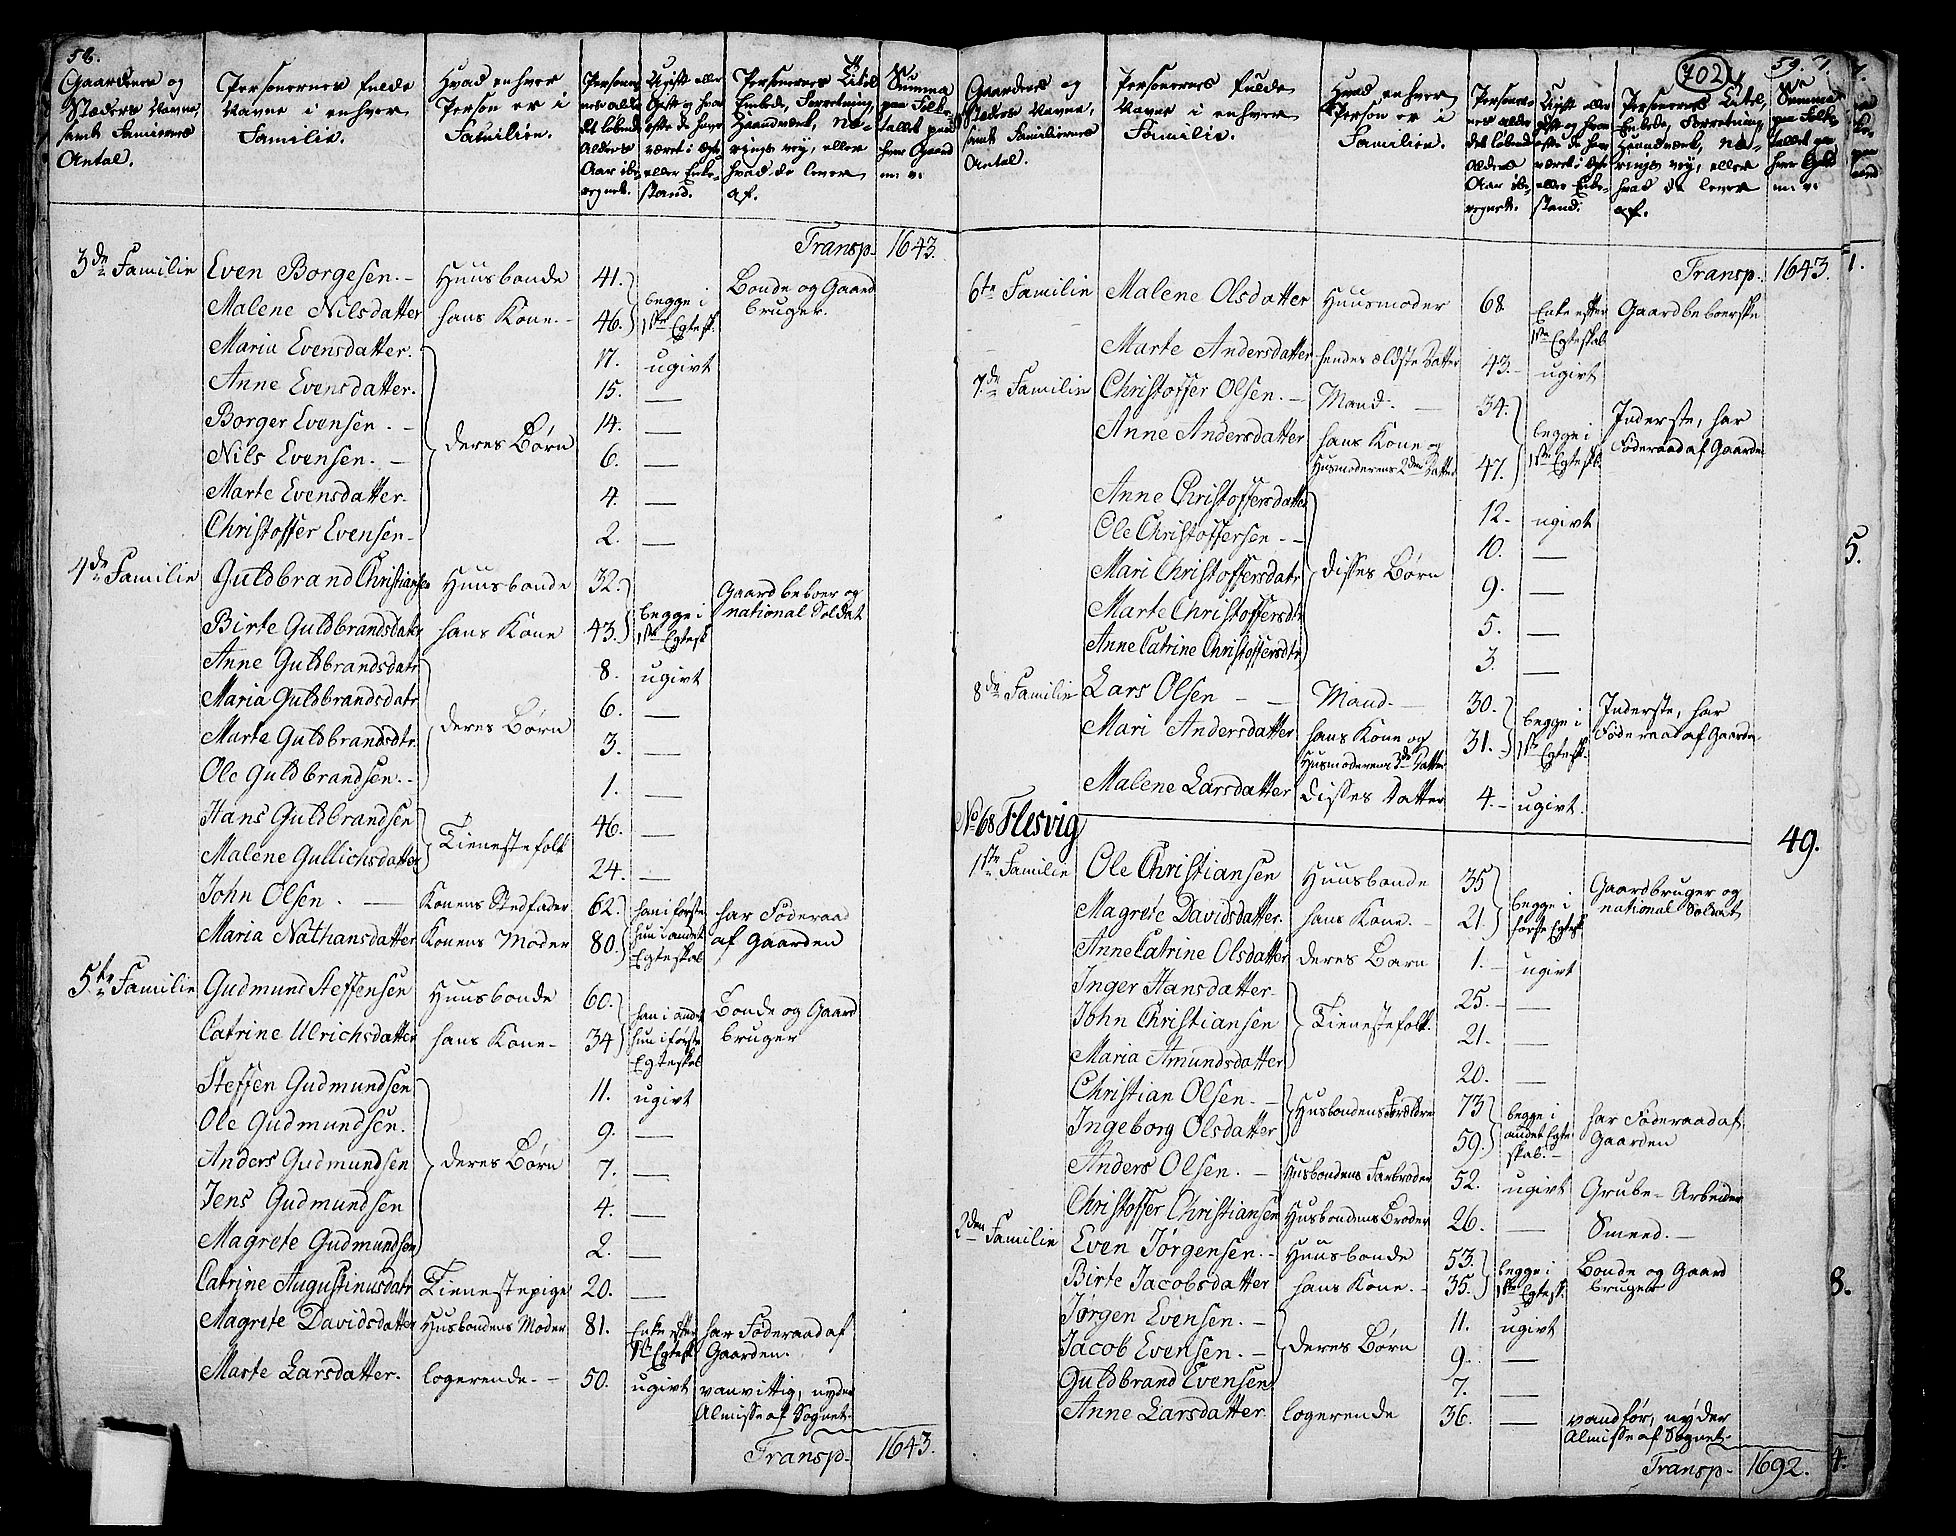 58.
Gaardenes og Stæders Navne, samt Familiernes Antal.
Personernes fulde Navne i enhver Familie.
Hvad enhver Person er i Familien.
Personernes Alder det løbende Alders Aar iberegnet.
Ugift eller Gift og hvor ofte de have været i Egte- eller Enkestand.
Personernes Titel, Embede, Forretning, Haandværk, Nærings vey, eller hvad de lever af.
Summa paa Folketallet paa hver Gaard
Transp. 1643.
3de Familie Even Borgesen.- Huusbonde 41. begge i 1ste Egtesk. Bonde og Gaardbruger.
Malene Nilsdatter hans Kone.- 46.
Maria Evensdatter. 17. ugivt
Anne Evensdatter. 15. —
Borger Evensen.- deres Børn 14. —
Nils Evensen.- 6. —
Marte Evensdatter. 4. —
Christoffer Evensen- 2. —
4de Familie Guldbrand Christiansen Huusbonde 32. begge i 1ste Egtesk Gaardbeboer og national Soldat
Birte Guldbrandsdatr hans Kone 43.
Anne Guldbrandsdatr 8. ugivt
Maria Guldbrandsdatr 6. —
Marte Guldbrandsdtr. deres Børn 3. —
Ole Guldbrandsen.- 1. —
Hans Guldbrandsen Tienestefolk 46. —
Malene Gullichsdatter 24. —
John Olsen. — Konens Stedfader 62. han i første hun i andet Egteskab har Føderaad af Gaarden
Maria Nathansdatter Konens Moder 80.
5te Familie Gudmund Steffensen Huusbonde 60. han i andet hun i første Egteskab Bonde og Gaardbruger
Catrine Ulrichsdatter hans Kone- 34
Steffen Gudmundsen 11. ugivt
Ole Gudmundsen. 9. —
Anders Gudmundsen deres Børn 7. —
Jens Gudmundsen 4. —
Magrete Gudmundsen 2. —
Catrine Augustinusdatr Tienestepige 20. —
Magrete Davidsdatter Husbondens Moder 81. Enke efter 1ste Egtesk har Føderaad af Gaarden.
Marte Larsdatter. logerende.- 50. ugivt vanvittig, nyder Almisse af Sognet.
Transp. 1643.
702
59.
Gaardenes og Stæders Navne, samt Familiernes Antal.
Personernes fulde Navne i enhver Familie.
Hvad enhver Person er i Familien.
Personernes Alder det løbende Alders Aar iberegnet.
Ugift eller gift og hvor ofte de have været i Egte eller Enkestand.
Personernes Titel, Embede, Forretning, Haandværk, Nærings vey, eller hvad de lever af.
Summa paa Folketallet paa hver Gaard
Transp. 1643.
6te Familie Malene Olsdatter Huusmoder 68. Enke efter 1ste Egteskab Gaardbeboerske
Marte Andersdatter hendes ældste Datter 43.- ugivt
7de Familie Christoffer Olsen.- Mand.- 34. begge i 1ste Egtesk. Inderste, har Føderaad af Gaarden
Anne Andersdatter hans Kone og Husmoderens 2den Datter 47.
Anne Christoffersdatter 12. ugivt
Ole Christoffersen.-- 10. —
Mari Christoffersdatr disses Børn 9. —
Marte Christoffersdtr 5. —
Anne Catrine Christoffersdtr 3. —
8de Familie Lars Olsen - Mand.- 30. begge i 1ste Egtesk. Inderste, har Føderaad af Gaarden
Mari Andersdatter hans Kone og Husmoderens 3de Datter 31.
Malene Larsdatter disses Datter 4.- ugivt.
49.
No 68 Flesvig
1ste Familie Ole Christiansen Huusbonde 35 begge i første Egtesk Gaardbruger og national Soldat
Magrete Davidsdatter. hans Kone.- 21.
Anne Catrine Olsdatter deres Barn 1.- ugivt
Inger Hansdatter- 25.- —
John Christiansen Tienestefolk. 21. —
Maria Amundsdatter 20. —
Christian Olsen.- Husbondens Forældre 73 begge i andet Egteskab.- har Føderaad af Gaarden
Ingeborg Olsdatter 59.
Anders Olsen.- Husbondens Farbroder 52. ugivt Grube-Arbeider
Christoffer Christiansen Husbondens Broder 26. — Smeed.-
2den Familie Even Jørgensen.- Huusbonde 53. begge i 1ste Egtesk. Bonde og Gaardbruger
Birte Jacobsdatter hans Kone.- 35.
Jørgen Evensen.- 11. ugivt
Jacob Evensen.- deres Børn 9. —
Guldbrand Evensen 7. —
Anne Larsdatter logerende 36. — vandfør, nyder Almisse af Sognet.
Transp. 1692.
1.
5.
8.
4.